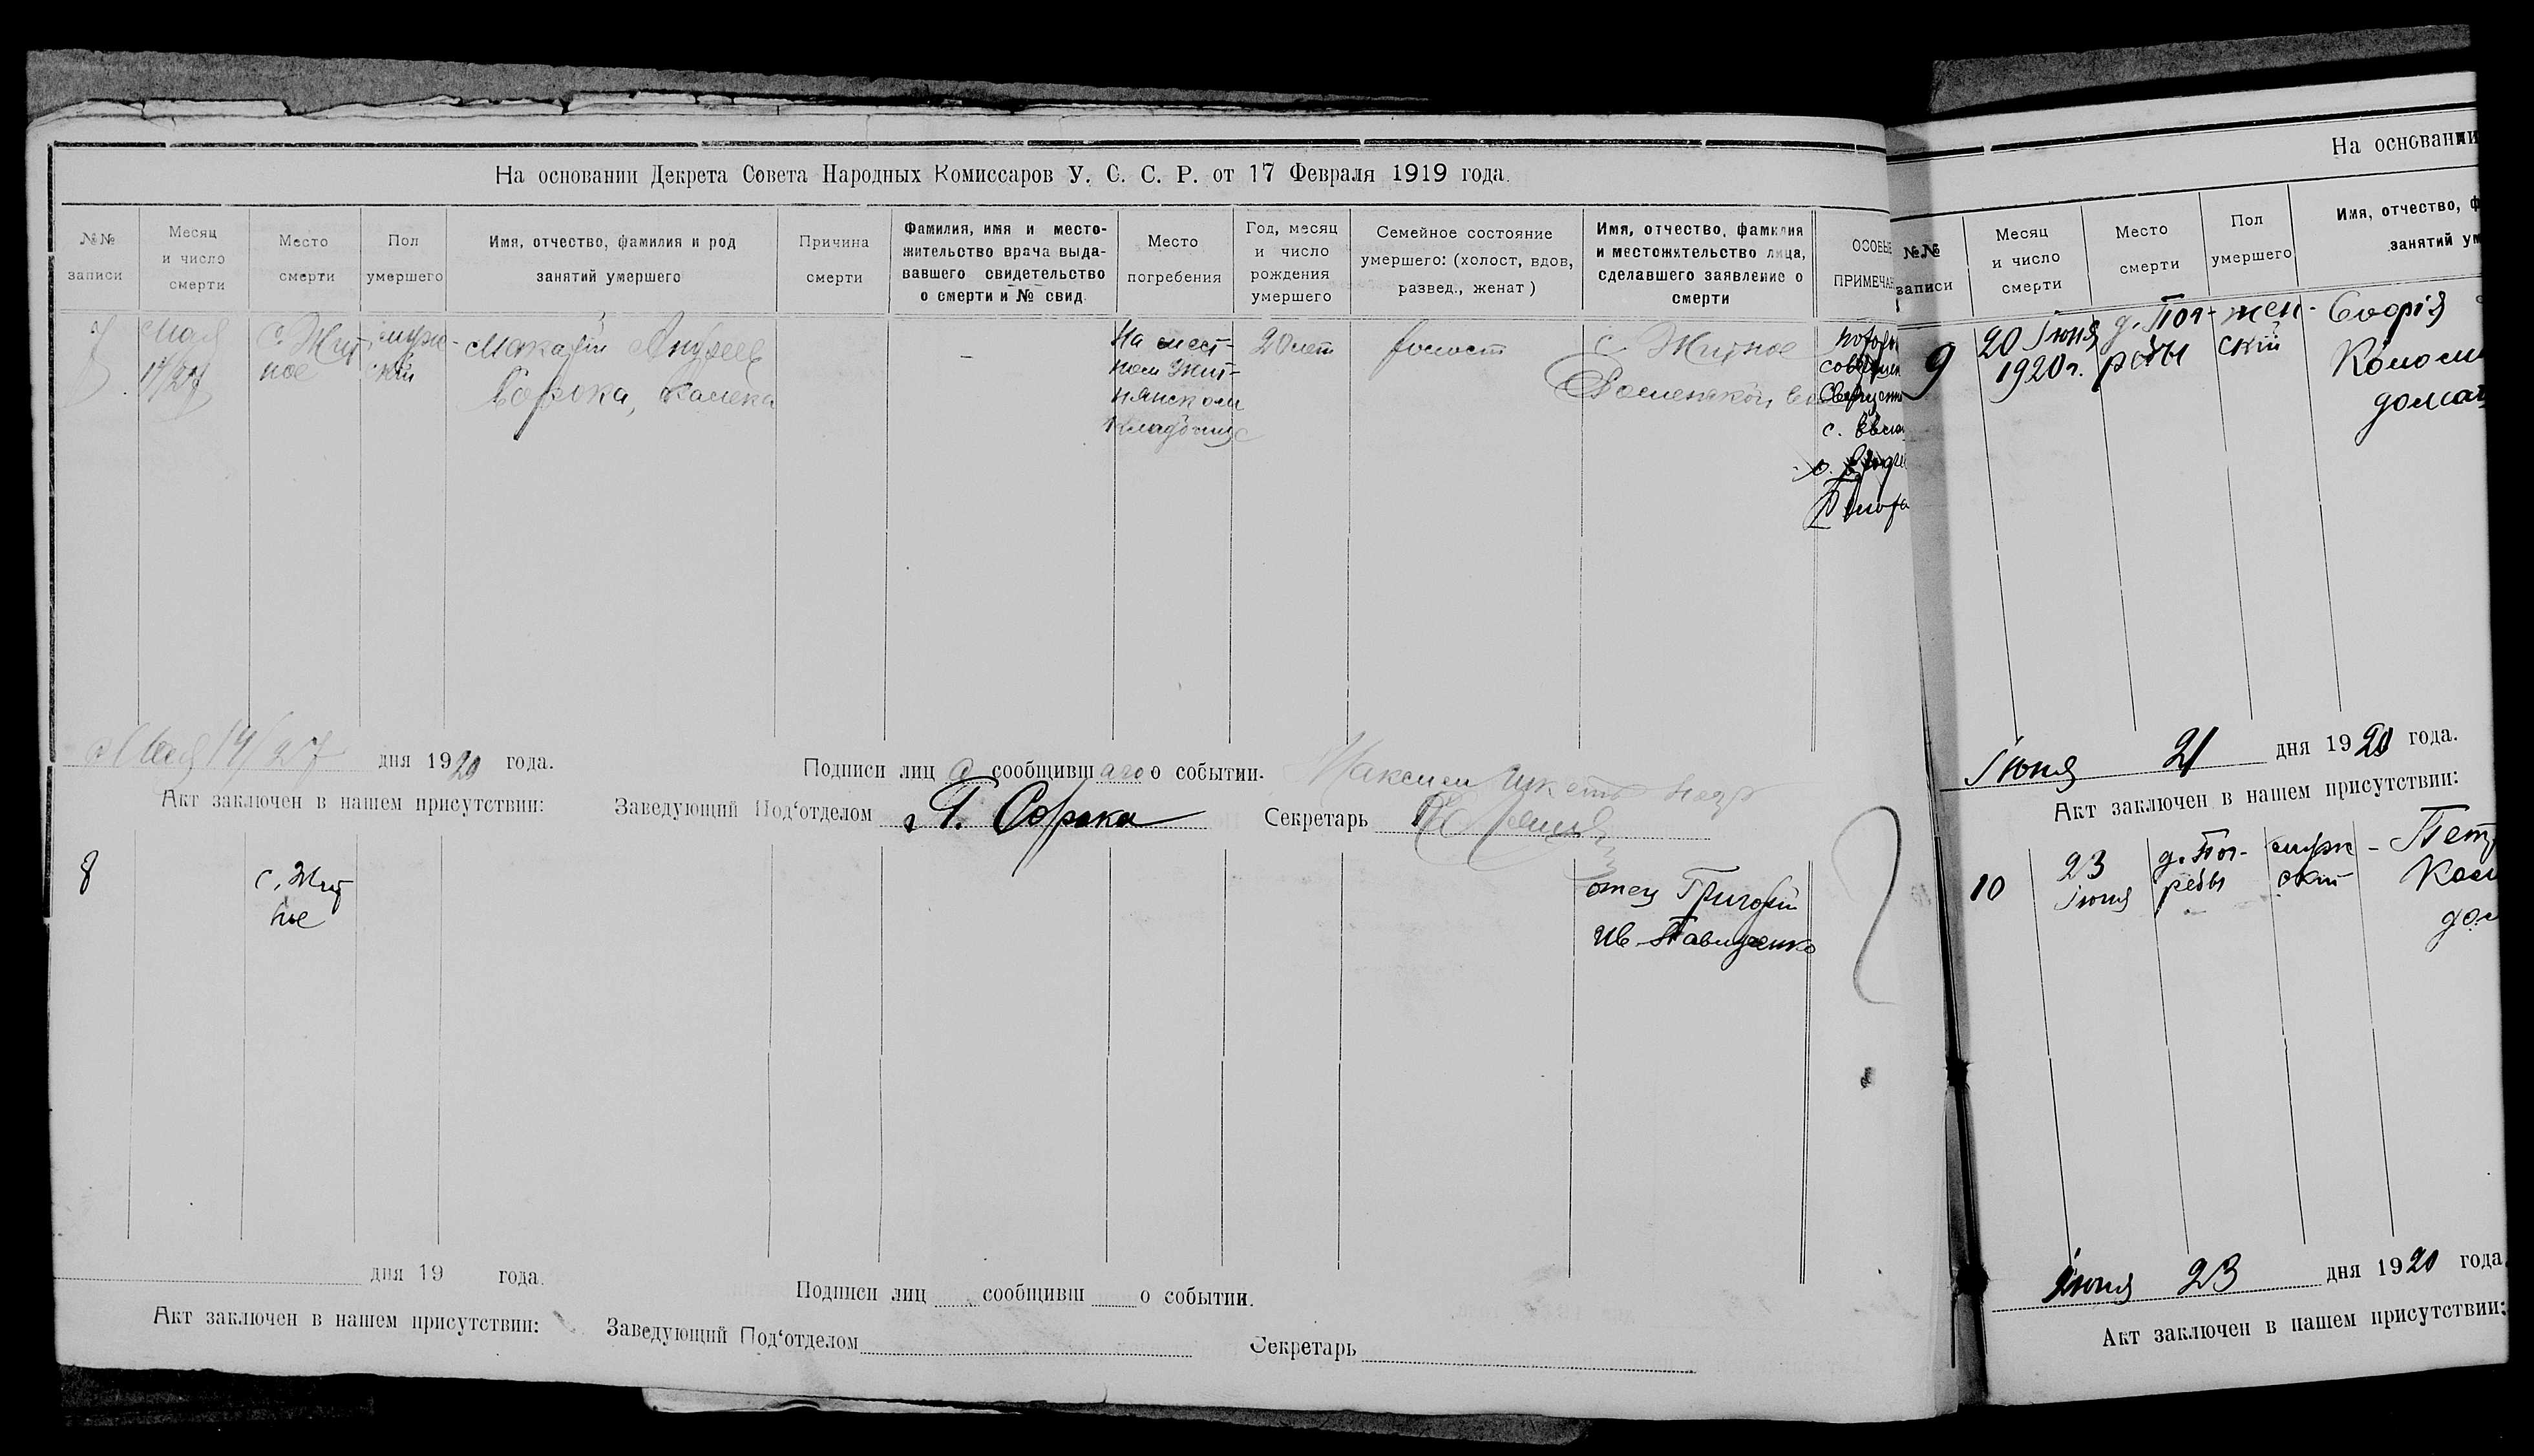 На основании Декрета Совета Народных Комиссаров У. С. С. Р. от 17 Февраля 1919 года.
№№ записи
Месяц и число смерти
Место смерти
Пол умершего
Имя, отчество, фамилия и род занятий умершего
Причина смерти
Фамилия, имя и местожительство врача выдававшего свидетельство о смерти и № свид.
Место погребения
Год, месяц и число рождения умершего
Семейное состояние умершего: (холост, вдов, развед., женат)
Имя, отчество, фамилия и местожительство лица, сделавшего заявление о смерти
ОСОБЫЕ
ПРИМЕЧАН
7
Мая
14/27
с. Жит
ное
мужс-
кій
Макарій Андреев
Сорока, калека
—
На мест-
ном Жит-
нянском
кладбище
20 лет
холост
с. Житное
Роменской
с.
Мая 14/27 дня 1920 года.
Подписи лиц а сообщивш аго о событии.
Максим
Акт заключен в нашем присутствии:
Заведующий Под'отделом Г. Сорока
Секретарь
8
с. Жит
ное
отец Григорій
Ив. Павлученко
дня 19 года.
Подписи лиц сообщивш о событии.
Акт заключен в нашем присутствии:
Заведующий Под'отделом
Секретарь
На основании
№№ записи
Месяц и число смерти
Место смерти
Пол умершего
Имя, отчество, ф
занятий ум
9
20 Іюня
1920 г.
д. Пог-
ребы
жен-
скій
Софія
Іюня 21 дня 1920 года.
Акт заключен в нашем присутствии:
10
23
Іюня
д. Пог-
ребы
мужс-
скій
Пет
Іюня 23 дня 1920 года.
Акт заключен в нашем присутствии: